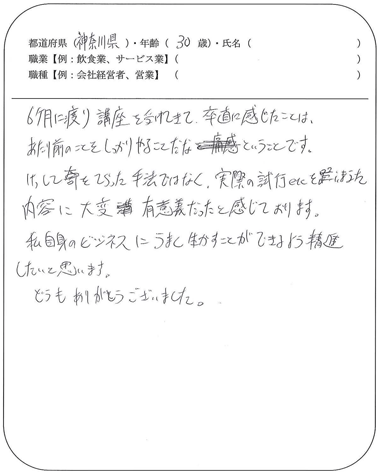 都道府県（神奈川県）・年齢（ 30 歳）・氏名（　　　　　　　）
職業【例：飲食業、サービス業】（　　　　　　　）
職種【例：会社経営者、営業】（　　　　　　　）
6ヶ月に渡り講座を受けてきて、卒直に感じたことは、
あたり前のことをしっかりやることだなということです。
けっして奇をてらった手法ではなく、実際の試行etcを踏まえた
内容に大変有意義だったと感じております。
私自身のビジネスにうまく生かすことができるよう精進
したいと思います。
どうもありがとうございました。